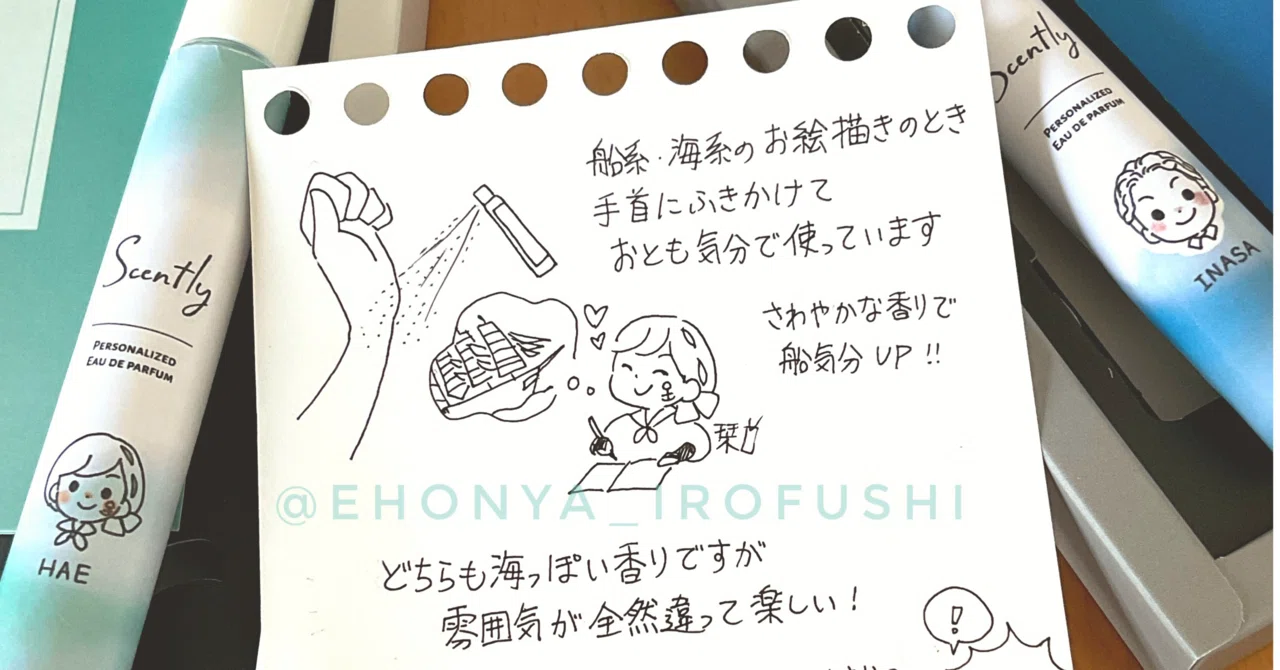 Scently
PERSONALIZED
EAU DE PARFUM
HAE
船系・海系のお絵描きのとき
手首にふきかけて
おとも気分で使っています
さわやかな香りで
船気分UP!!
@EHONYA_IROFUSHI
どちらも海っぽい香りですが
雰囲気が全然違って楽しい!
!
Scently
PERSONALIZED
EAU DE PARFUM
INASA